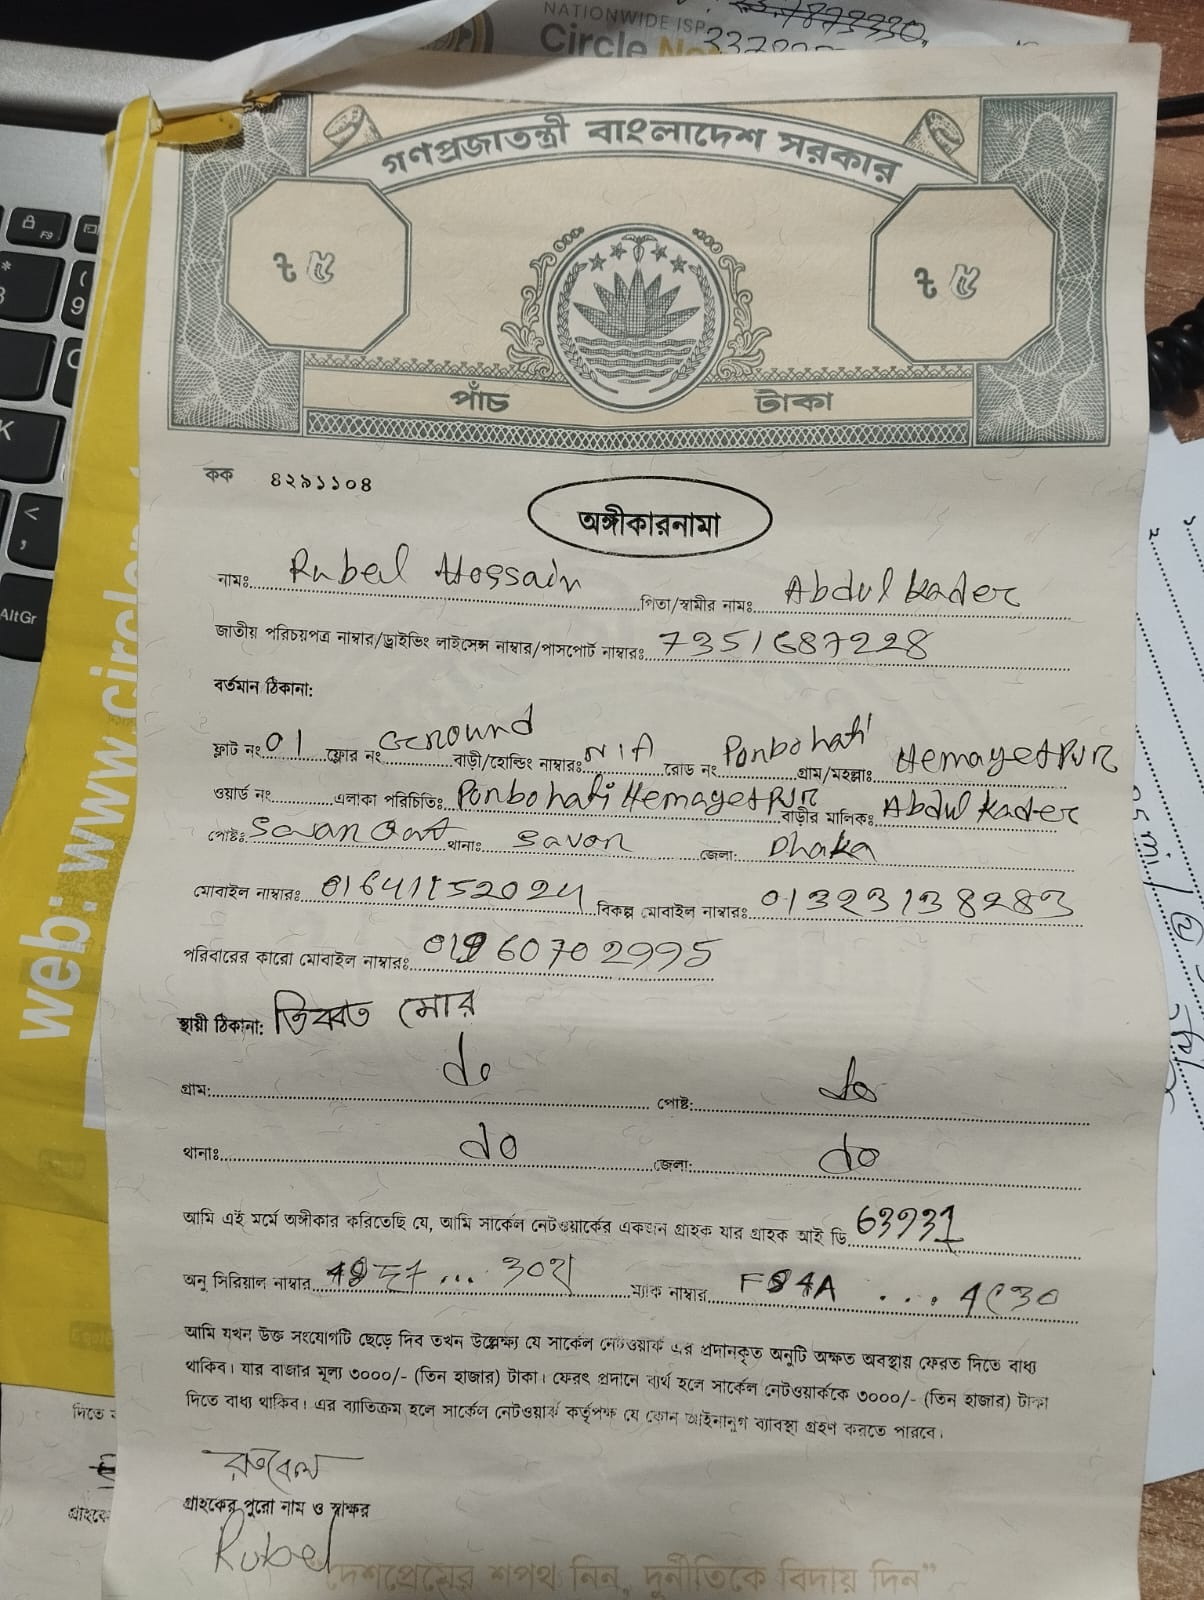 NATIONWIDE ISP
Circle
গণপ্রজাতন্ত্রী বাংলাদেশ সরকার
৳ ৫
৳ ৫
পাঁচ টাকা
কক ৪২৯১১০৪
অঙ্গীকারনামা
নামঃ Rubel Hossain পিতা/স্বামীর নামঃ Abdul Kader
জাতীয় পরিচয়পত্র নাম্বার/ড্রাইভিং লাইসেন্স নাম্বার/পাসপোর্ট নাম্বারঃ 7351687228
বর্তমান ঠিকানা:
ফ্লাট নংঃ 01 ফ্লোর নংঃ Ground বাড়ী/হোল্ডিং নাম্বারঃ N/A রোড নং Ponbohati গ্রাম/মহল্লাঃ Hemayetpur
ওয়ার্ড নংঃ এলাকা পরিচিতিঃ Ponbohati Hemayetpur বাড়ীর মালিকঃ Abdul Kader
পোষ্টঃ থানাঃ Savar জেলা: Dhaka
মোবাইল নাম্বারঃ 01641152024 বিকল্প মোবাইল নাম্বারঃ 01323138283
পরিবারের কারো মোবাইল নাম্বারঃ 01960702995
স্থায়ী ঠিকানা:
গ্রাম: do পোষ্ট: do
থানাঃ do জেলা: do
আমি এই মর্মে অঙ্গীকার করিতেছি যে, আমি সার্কেল নেটওয়ার্কের একজন গ্রাহক যার গ্রাহক আই ডি 63931
অনু সিরিয়াল নাম্বার ম্যাক নাম্বার
আমি যখন উক্ত সংযোগটি ছেড়ে দিব তখন উল্লেক্ষ্য যে সার্কেল নেটওয়ার্ক এর প্রদানকৃত অনুটি অক্ষত অবস্থায় ফেরত দিতে বাধ্য
থাকিব। যার বাজার মূল্য ৩০০০/- (তিন হাজার) টাকা। ফেরৎ প্রদানে ব্যর্থ হলে সার্কেল নেটওয়ার্ককে ৩০০০/- (তিন হাজার) টাকা
দিতে বাধ্য থাকিব। এর ব্যতিক্রম হলে সার্কেল নেটওয়ার্ক কর্তৃপক্ষ যে কোন আইনানুগ ব্যাবস্থা গ্রহণ করতে পারবে।
রুবেল
গ্রাহকের পুরো নাম ও স্বাক্ষর
Rubel
"দেশপ্রেমের শপথ নিন, দুর্নীতিকে বিদায় দিন"
web: www.circle